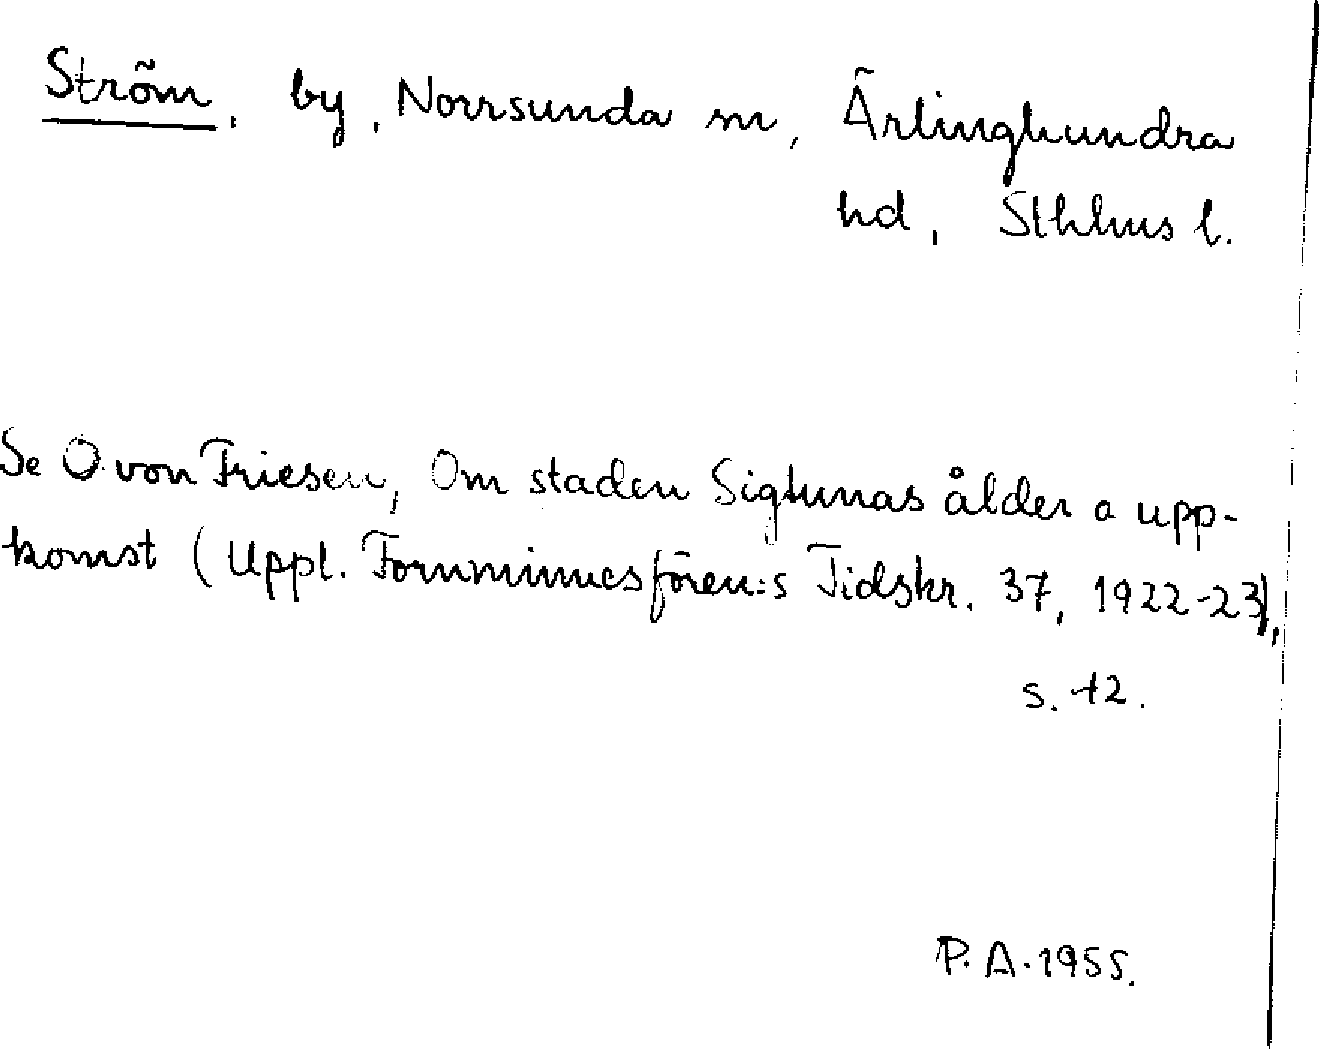 Ström, by, Norrsunda sn, Ärlinghundra
hd, Sthlms l.
Se O. von Friesen, Om staden Sigtunas ålder o upp-
komst (Uppl. Fornminnesfören:s Tidskr. 37, 1922-23),
s. 12.
P. A. 1955.